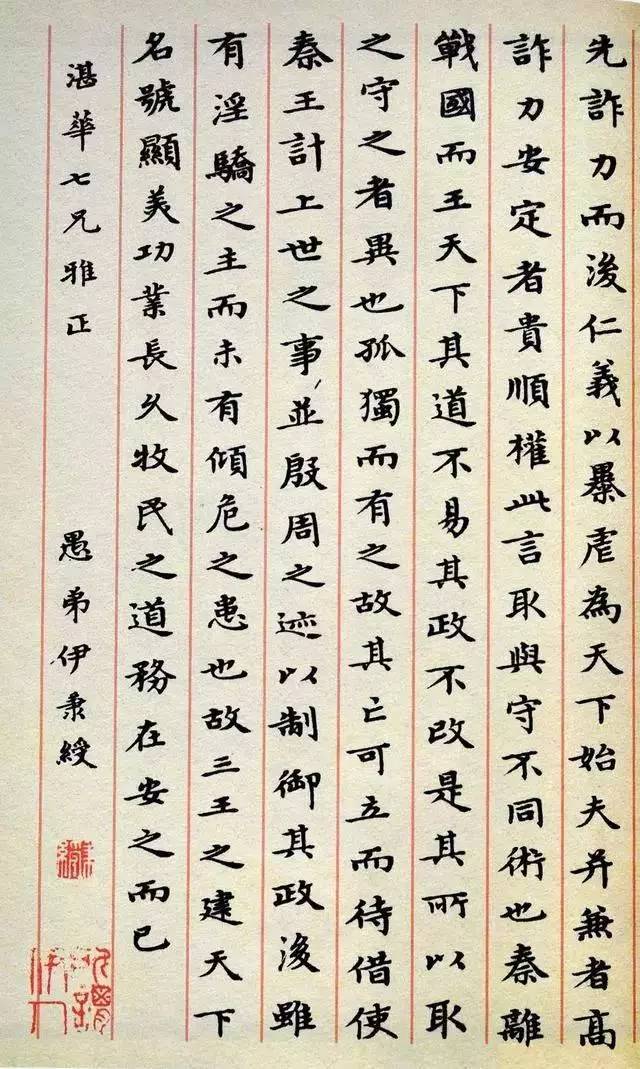 先詐力而後仁義以暴虐為天下始夫并兼者高
詐力安定者貴順權此言取與守不同術也秦離
戰國而王天下其道不易其政不改是其所以取
之守之者異也孤獨而有之故其亡可立而待借使
秦王計上世之事並殷周之迹以制御其政後雖
有淫驕之主而未有傾危之患也故三王之建天下
名號顯美功業長久牧民之道務在安之而已
湛華七兄雅正
愚弟伊秉綬